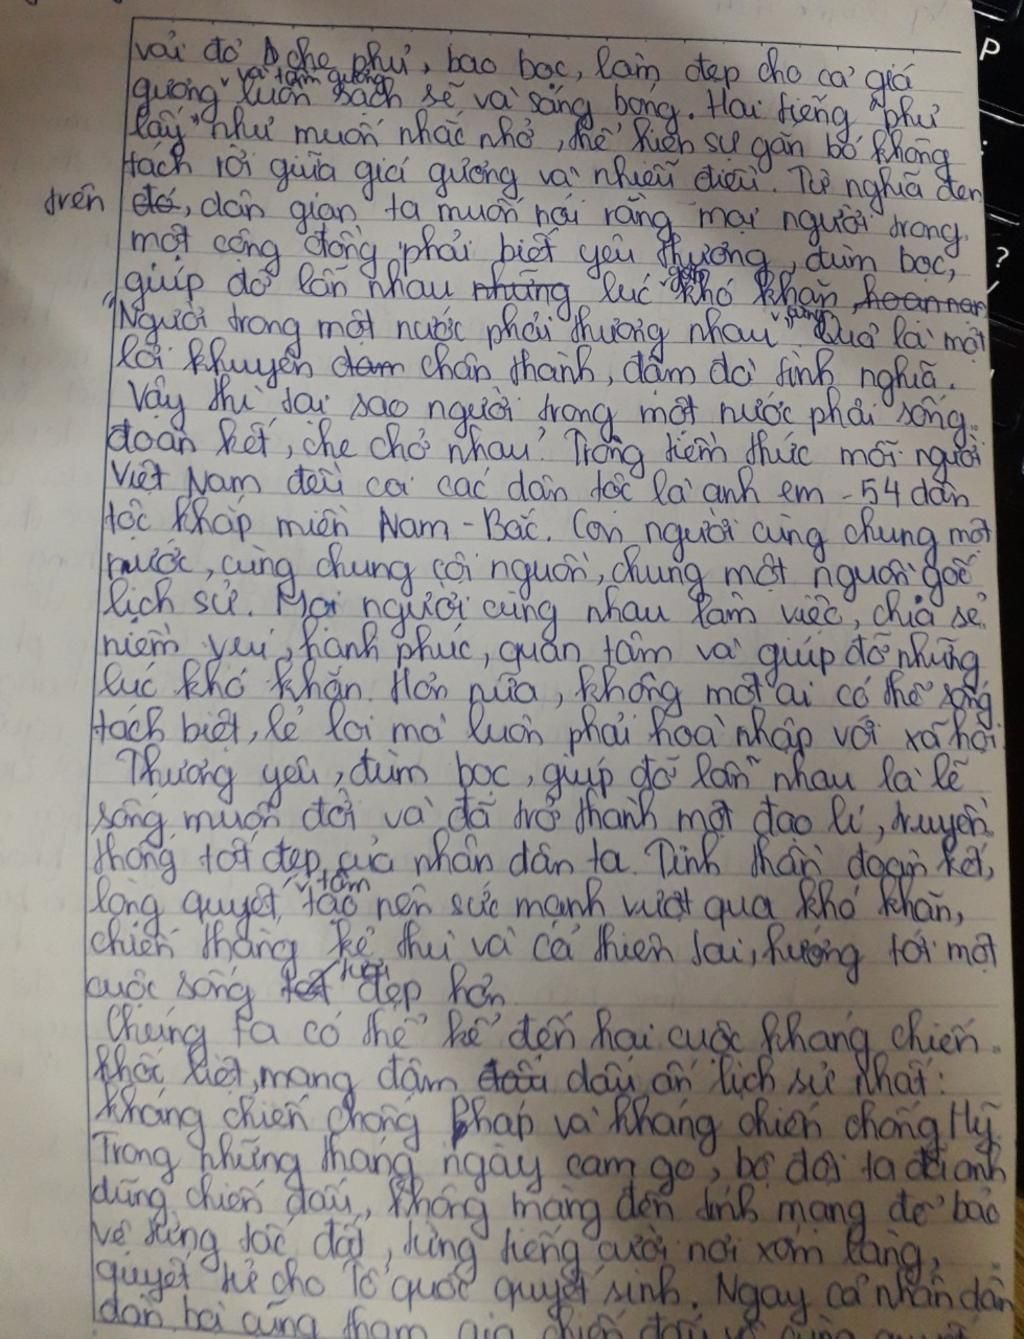 P
vải đỏ che phủ, bao bọc, làm đẹp cho cả giá
gương và tấm gương luôn sạch sẽ và sáng bóng. Hai tiếng "phủ
lấy" như muốn nhắc nhở, thể hiện sự gắn bó không
tách rời giữa giá gương và nhiễu điều. Từ nghĩa đen
trên đó, dân gian ta muốn nói rằng mọi người trong
một cộng đồng phải biết yêu thương, đùm bọc,
?
giúp đỡ lẫn nhau những lúc gặp khó khăn, hoạn nạn
"Người trong một nước phải thương nhau cùng" Quả là một
lời khuyên chân thành, đậm đà tình nghĩa.
Vậy thì tại sao người trong một nước phải sống
đoàn kết, che chở nhau? Trong tiềm thức mỗi người
Việt Nam đều coi các dân tộc là anh em - 54 dân
tộc khắp miền Nam - Bắc. Con người cùng chung một
nước, cùng chung cội nguồn, chung một nguồn gốc
lịch sử. Mọi người cùng nhau làm việc, chia sẻ
niềm vui, hạnh phúc, quan tâm và giúp đỡ những
lúc khó khăn. Hơn nữa, không một ai có thể sống
tách biệt, lẻ loi mà luôn phải hoà nhập với xã hội
Thương yêu, đùm bọc, giúp đỡ lẫn nhau là lẽ
sống muôn đời và đã trở thành một đạo lí, truyền
thống tốt đẹp của nhân dân ta. Tinh thần đoàn kết,
lòng quyết tâm tạo nên sức mạnh vượt qua khó khăn,
chiến thắng kẻ thù và cả thiên tai, hướng tới một
cuộc sống tốt tươi đẹp hơn
Chúng ta có thể kể đến hai cuộc kháng chiến
khốc liệt, mang đậm dấu ấn lịch sử nhất:
kháng chiến chống Pháp và kháng chiến chống Mỹ.
Trong những tháng ngày cam go, bộ đội ta đã anh
dũng chiến đấu, không màng đến tính mạng để bảo
vệ từng tấc đất, từng tiếng cười nơi xóm làng,
quyết tử cho Tổ quốc quyết sinh. Ngay cả nhân dân
cũng tham gia chiến đấu